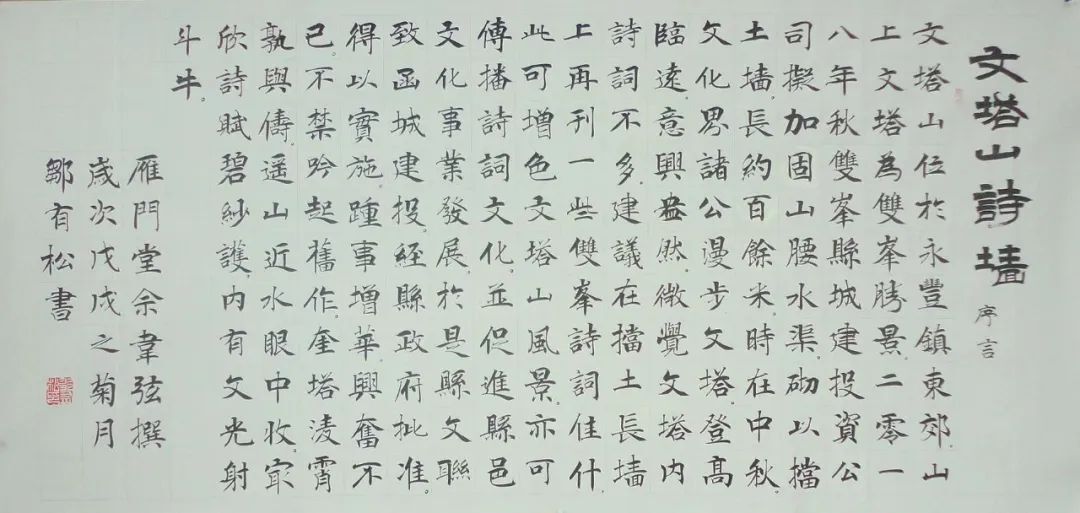 文塔山詩墻
序言
文塔山位於永豐鎮東郊。山
上文塔為雙峯勝景。二零一
八年秋雙峯縣城建投資公
司擬加固山腰水渠。砌以擋
土墻。長約百餘米。時在中秋。
文化界諸公漫步文塔。登高
臨遠。意興盎然。微覺文塔内
詩詞不多。建議在擋土長墻
上再刊一些雙峯詩詞佳什。
此可增色文塔山風景亦可
傳播詩詞文化。並促進縣邑
文化事業發展。於是縣文聯
致函城建投。經縣政府批准。
得以實施。踵事增華。興奮不
已。不禁吟起舊作。奎塔凌霄
孰與儔。遥山近水眼中收。㝡
欣詩賦碧紗護内有文光射
斗牛。
雁門堂余韋弦撰
歲次戊戌之菊月
鄒有松書